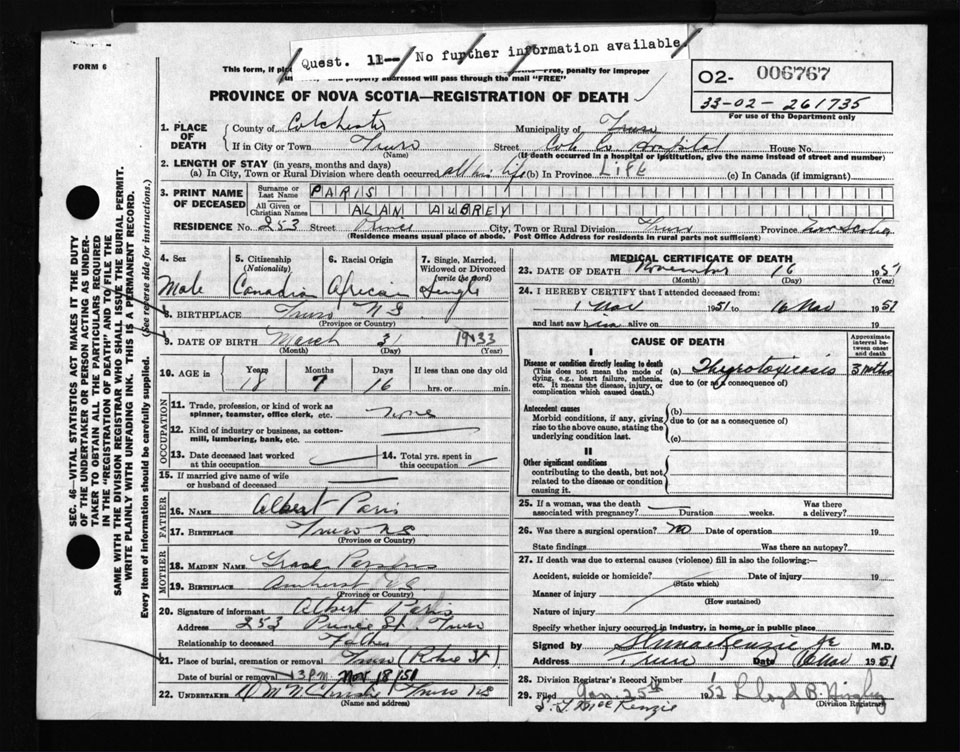 Quest. 11-- No further information available.
FORM 6
This form, if
Free, penalty for improper
addressed will pass through the mail "FREE"
02- 006767
33-02-261735
For use of the Department only
PROVINCE OF NOVA SCOTIA—REGISTRATION OF DEATH
1. PLACE OF DEATH
County of Colchester Municipality of Truro
If in City or Town Truro Street Col. Co. Hospital House No.
(Name) (If death occurred in a hospital or institution, give the name instead of street and number)
2. LENGTH OF STAY (in years, months and days)
(a) In City, Town or Rural Division where death occurred all his life (b) In Province LIFE (c) In Canada (if immigrant)
3. PRINT NAME OF DECEASED
Surname or Last Name PARIS
All Given or Christian Names ALAN AUBREY
RESIDENCE No. 253 Street Prince City, Town or Rural Division Truro Province Nova Scotia
(Residence means usual place of abode. Post Office Address for residents in rural parts not sufficient)
4. Sex
Male
5. Citizenship (Nationality)
Canadian
6. Racial Origin
African
7. Single, Married, Widowed or Divorced (write the word)
Single
8. BIRTHPLACE Truro N.S.
(Province or Country)
9. DATE OF BIRTH March 31 1933
(Month) (Day) (Year)
10. AGE in Years Months Days If less than one day old
18 7 16 hrs. or min.
OCCUPATION
11. Trade, profession or kind of work as spinner, teamster, office clerk, etc. none
12. Kind of industry or business, as cotton-mill, lumbering, bank, etc.
13. Date deceased last worked at this occupation
14. Total yrs. spent in this occupation
15. If married give name of wife or husband of deceased
FATHER
16. NAME Albert Paris
17. BIRTHPLACE Truro N.S.
(Province or Country)
MOTHER
18. MAIDEN NAME Grace Parsons
19. BIRTHPLACE Amherst N.S.
(Province or Country)
20. Signature of informant Albert Paris
Address 253 Prince St. Truro
Relationship to deceased Father
21. Place of burial, cremation or removal Truro (Robie St.)
Date of burial or removal 3 P.M. Nov 18/51
22. UNDERTAKER Truro NS
(Name and address)
MEDICAL CERTIFICATE OF DEATH
23. DATE OF DEATH November 16 1951
(Month) (Day) (Year)
24. I HEREBY CERTIFY that I attended deceased from:
1 Nov 1951 to 16 Nov 1951
and last saw him alive on 19
CAUSE OF DEATH
Approximate interval between onset and death
I
Disease or condition directly leading to death
(This does not mean the mode of dying, e.g., heart failure, asthenia, etc. It means the disease, injury, or complication which caused death.)
(a) Thyrotoxicosis 3 mths
due to (or as a consequence of)
Antecedent causes
Morbid conditions, if any, giving rise to the above cause, stating the underlying condition last.
(b)
due to (or as a consequence of)
(c)
II
Other significant conditions
contributing to the death, but not related to the disease or condition causing it.
25. If a woman, was the death associated with pregnancy? Duration weeks. Was there a delivery?
26. Was there a surgical operation? No Date of operation 19
State findings Was there an autopsy?
27. If death was due to external causes (violence) fill in also the following:
Accident, suicide or homicide? Date of injury 19
(State which)
Manner of injury
(How sustained)
Nature of injury
Specify whether injury occurred in industry, in home, or in public place
Signed by MacKenzie Jr M.D.
Address Truro Date 16 Nov 1951
28. Division Registrar's Record Number
29. Filed Jan. 25th 1952 Lloyd B.
(Division Registrar)
MacKenzie
SEC. 46—VITAL STATISTICS ACT MAKES IT THE DUTY OF THE UNDERTAKER OR PERSON ACTING AS UNDERTAKER TO OBTAIN ALL THE PARTICULARS REQUIRED IN THE "REGISTRATION OF DEATH" AND TO FILE THE SAME WITH THE DIVISION REGISTRAR WHO SHALL ISSUE THE BURIAL PERMIT.
WRITE PLAINLY WITH UNFADING INK. THIS IS A PERMANENT RECORD.
Every item of information should be carefully supplied. (See reverse side for instructions.)